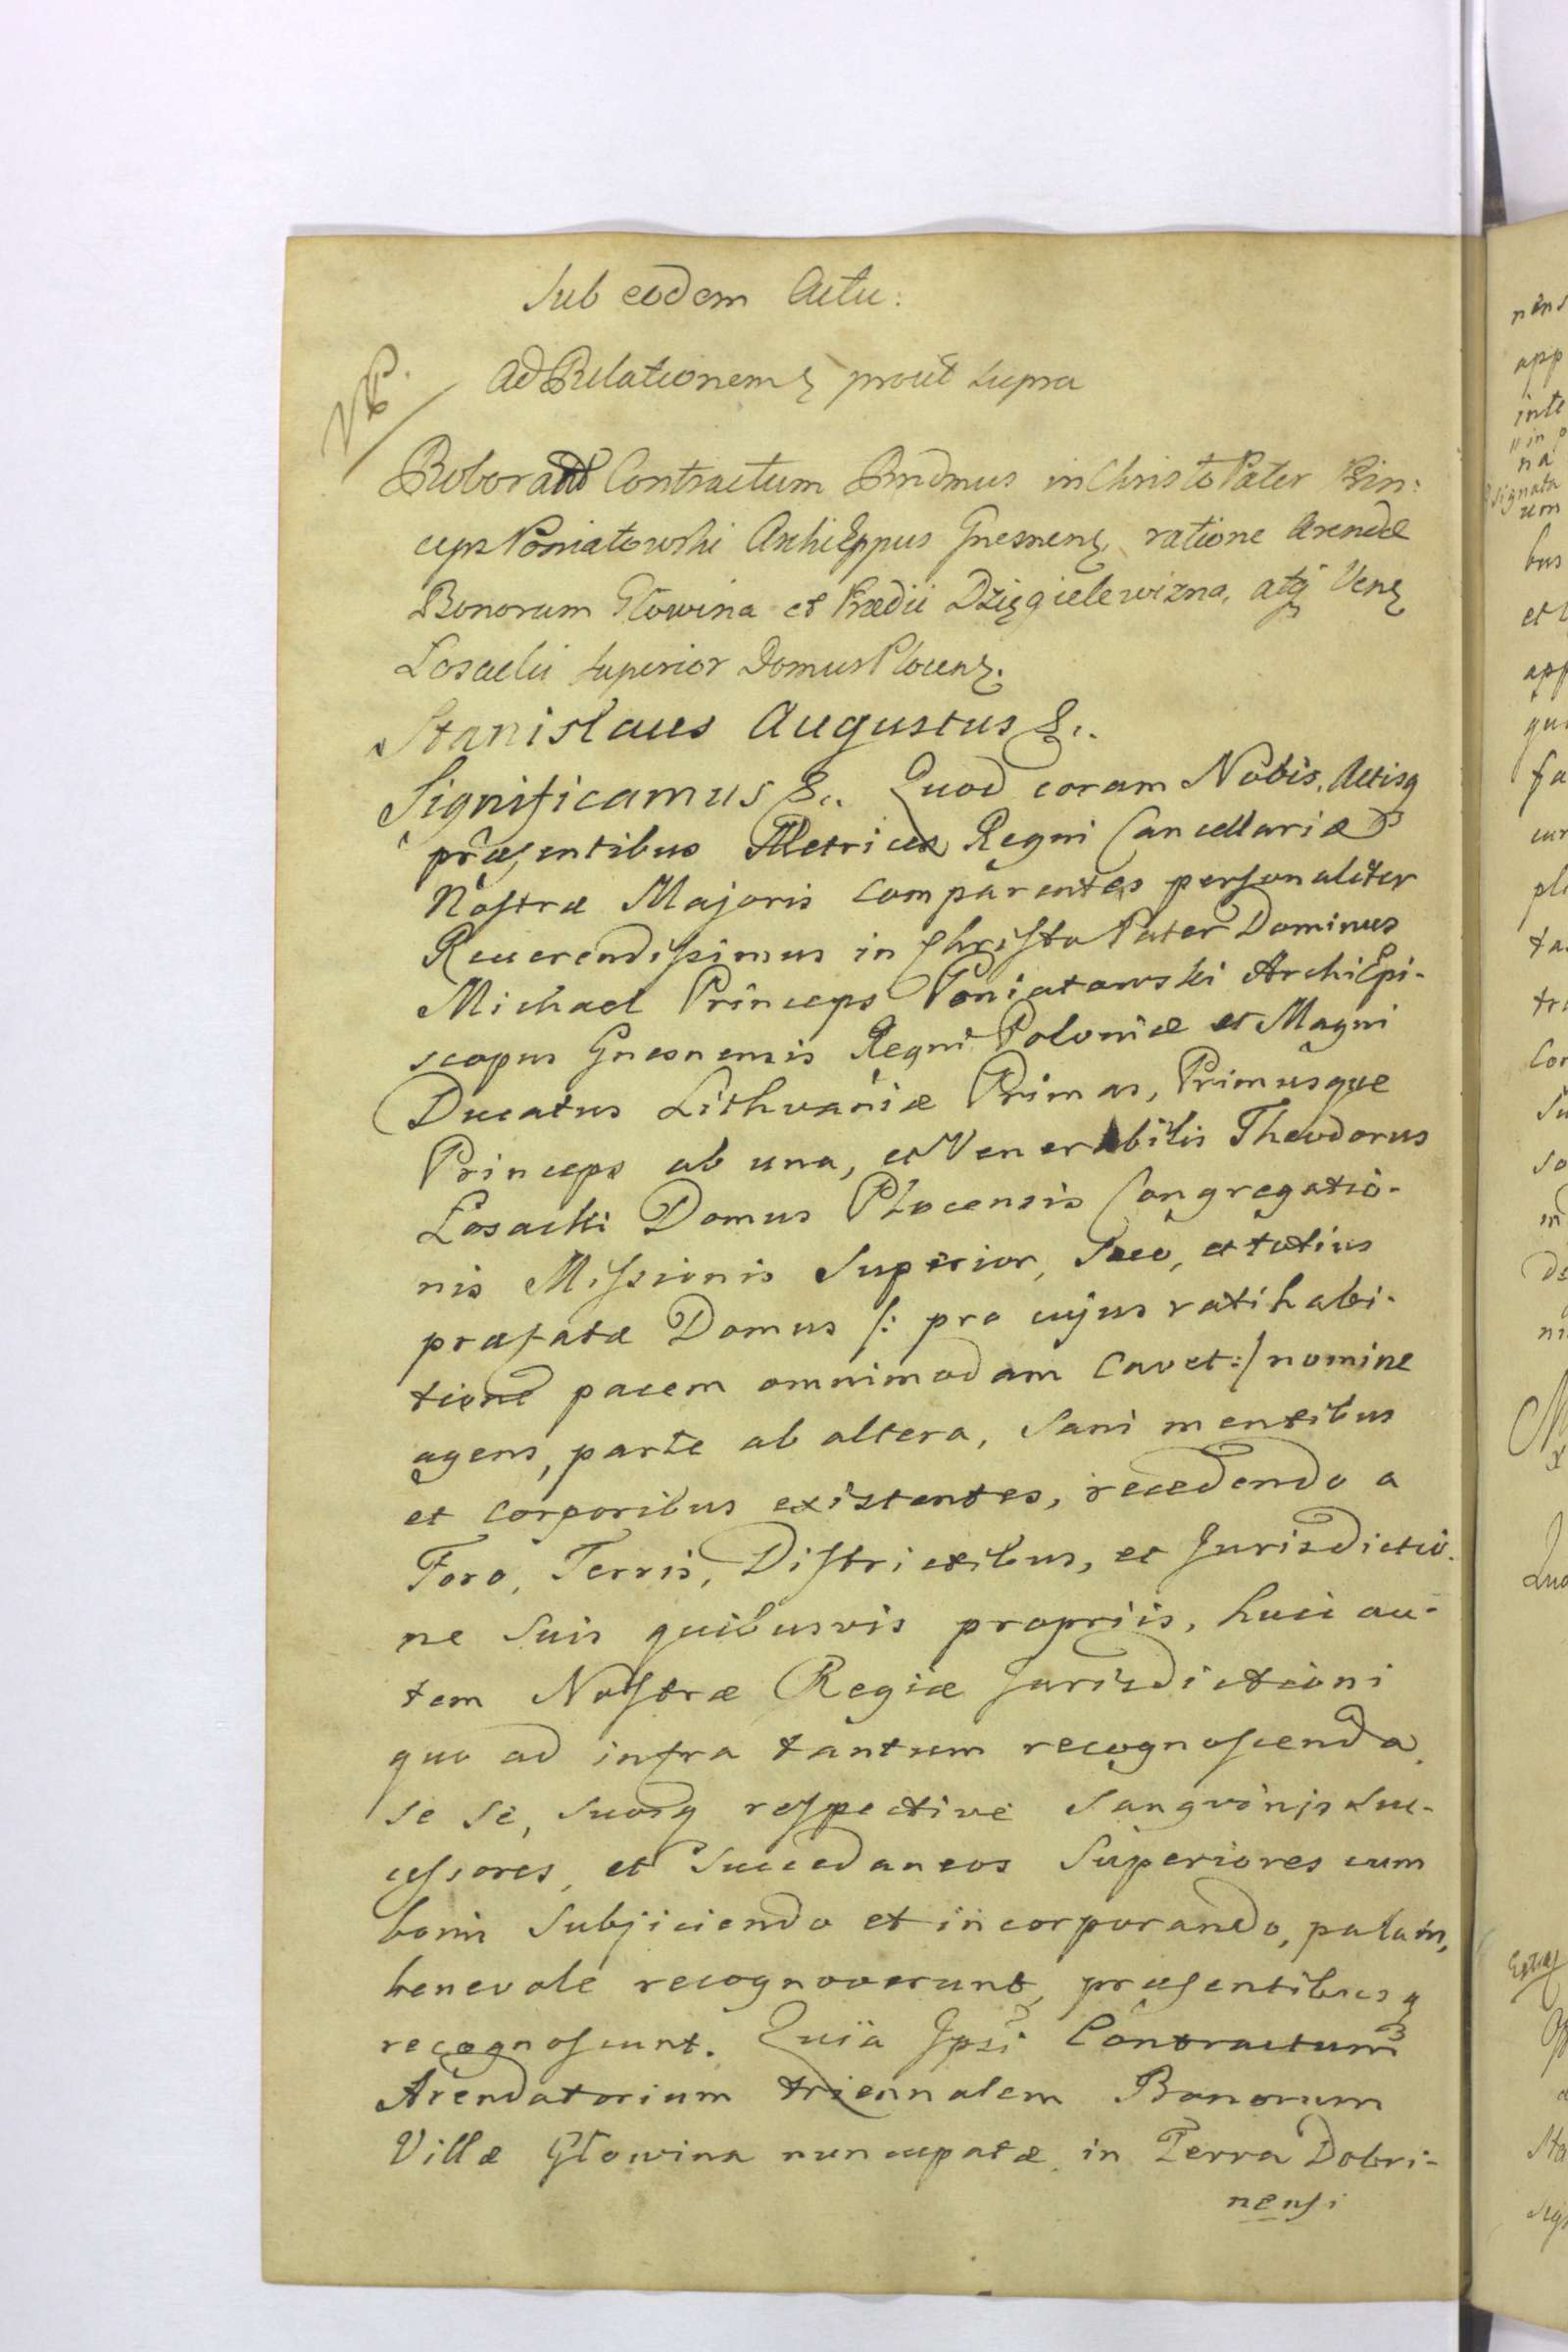 Sub eodem Actu:
Ad Relationem prout supra
Roborant Contractum Rndmus in Christo Pater Prin:
ceps Poniatowski ArchiEppus Gnesnens, ratione Arendæ
Bonorum Głowina et Prædii Dzięgielewizna, atq Vens
Łosacki Superior Domus Plocens.
Stanislaus Augustus &..
Significamus &.. Quod coram Nobis, Actisq
præsentibus Metrices Regni Cancellariæ
Nostræ Majoris comparentes personaliter
Reverendissimus in Christo Pater Dominus
Michael Princeps Poniatowski ArchiEpi-
scopus Gnesnensis Regni Poloniæ et Magni
Ducatus Lithvaniæ Primas, Primusque
Princeps ab una, et Venerabilis Theodorus
Łosacki Domus Plocensis Congregatio-
nis Missionis Superior, Suo, et totius
præfatæ Domus /: pro cujus ratihabi-
tione pacem omnimodam Cavet :/ nomine
agens, parte ab altera, Sani mentibus
et corporibus existentes, recedendo a
Foro, Terris, Districtibus, et Jurisdictio-
ne Suis quibusvis propriis, huic au-
tem Nostræ Regiæ Jurisdictioni
quo ad infra tantum recognoscenda
se se, Suosq respective Sangvinis Suc-
cessores, et Succedaneos Superiores cum
bonis Subjiciendo et incorporando, palam,
benevole recognoverunt, præsentibusq
recognoscunt. Quia Ipsi Contractum
Arendatorium triennalem Bonorum
Villæ Głowina nuncupatæ in Terra Dobri-
nensi
nens
app
inte
na
signata
um
bus
et
app
qui
fa
cur
ple
ta
tri
Con
Su
so
in
de
ni
Quo
Sta